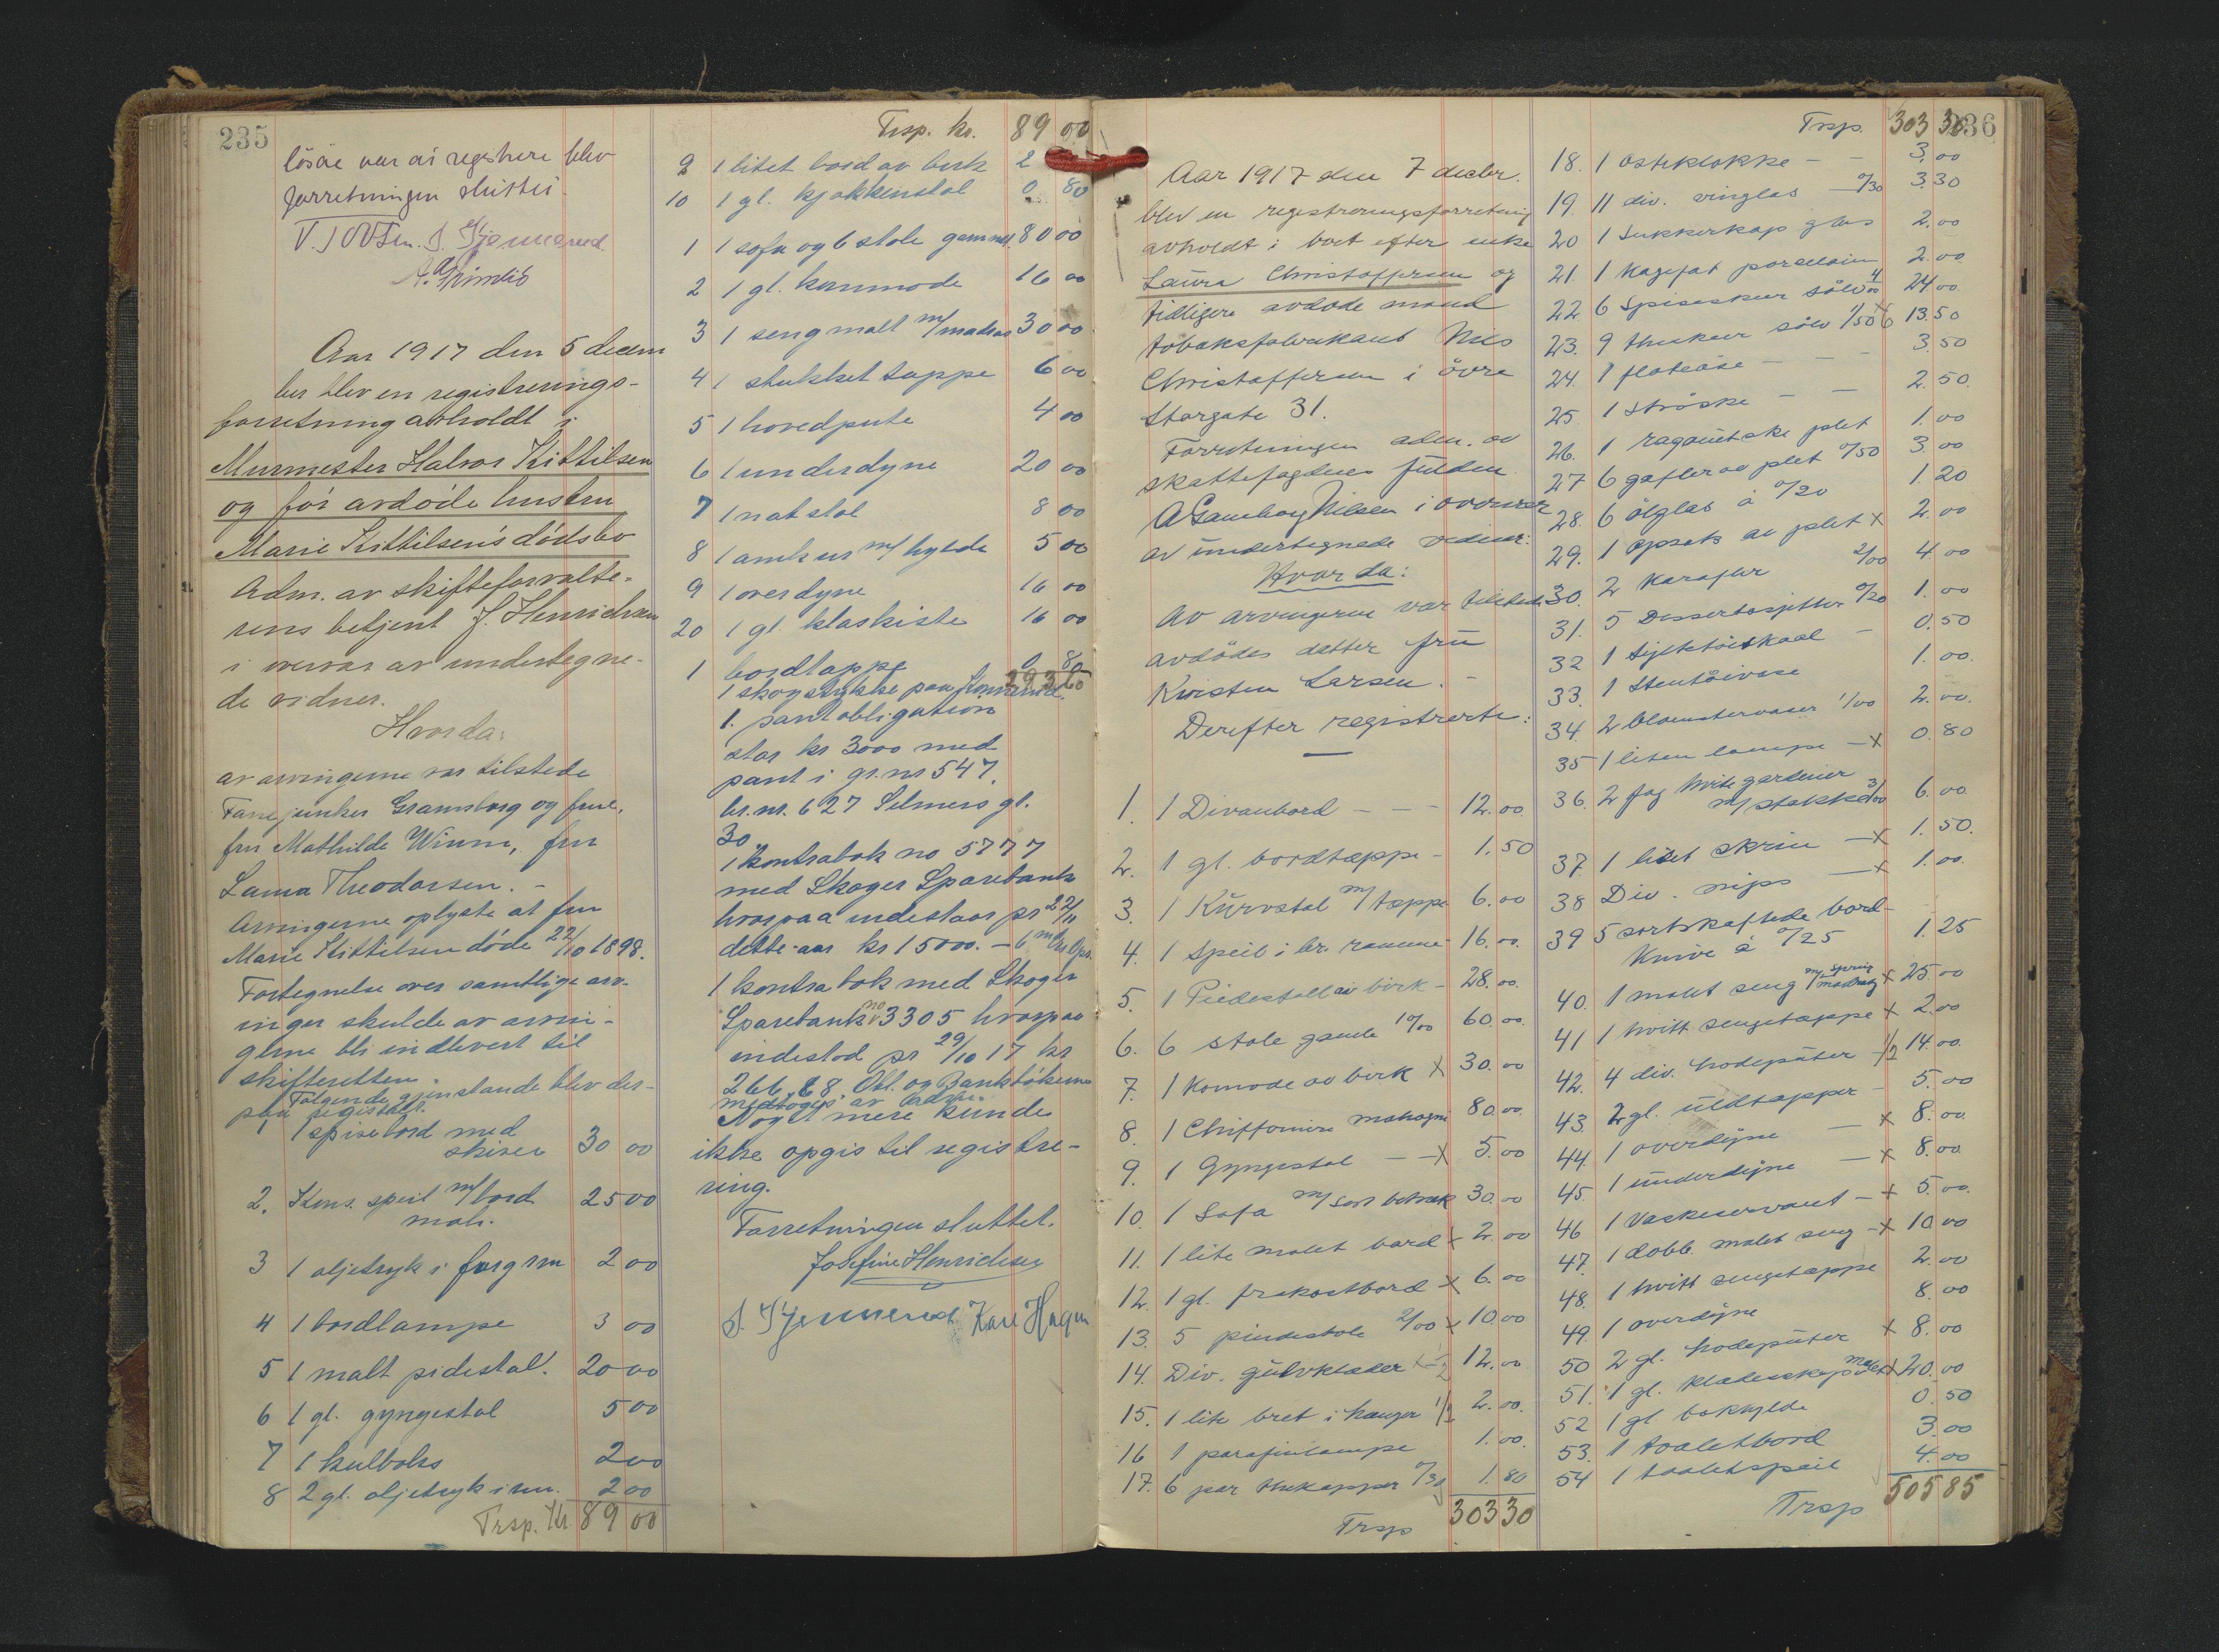 235
løsøre var at registrere blev
forretningen sluttet.
S. Tjennerud
Aar 1917 den 5 decem
ber blev en registrerings-
forretning avholdt i
Murmester Halvor Kittilsen
og før avdøde hustru
Marie Kittilsen's dødsbo
Adm. av skifteforvalte-
rens betjent J. Henrichsen
i overvær av undertegne-
de vidner.
Hvorda:
av arvingerne var tilstede
Gramsborg og frue,
fru Mathilde Winnu, fru
Laura Theodorsen. -
Arvingerne oplyste at fru
Marie Kittilsen døde 22/10 1898.
Fortegnelse over samtlige arv-
inger skulde av arvin-
gerne bli indlevert til
skifteretten.
Følgende gjenstande blev der-
paa registrert.
1 1 spisebord med
skiver 30 00
2. Kons. speil m/bord
mah. 25 00
3 1 oljetryk i forg rm 2 00
4 1 bordlampe 3 00
5 1 malt pidestal. 20 00
6 1 gl. gyngestol 5 00
7 1 kulboks 2 00
8 2 gl. oljetryk i rm. 2 00
Trsp. Kr. 89 00
Trsp. kr. 89 00
9 1 litet bord av birk 2
10 1 gl. kjøkkenstol 0 80
1 1 sofa og 6 stole gammel. 80 00
2 1 gl. kommode 16 00
3 1 seng malt m/madras 30 00
4 1 stukket tæppe 6 00
5 1 hovedpute 4 00
6 1 underdyne 20 00
7 1 natstol 8 00
8 1 amkur m/hylde 5 00
9 1 overdyne 16 00
20 1 gl. klæskiste 16 00
1 bordtæppe 0 80
1 skogstykke paa 293 60
1. pantobligation
stor kr 3000 med
pant i gr. nr 547,
br. nr. 627 Selmers gt.
30
1 kontrabok no 5777
med Skoger Sparebank
hvorpaa indestaar pr 22/11
dette aar kr 15000. - 6 mdrs Ops.
1 kontrabok med Skoger
Sparebank no 3305 hvorpaa
indestod pr 29/10 17 kr
266,68. Obl. og Bankbøkerne
medtoges av adm.
Noget mere kunde
ikke opgis til registre-
ring.
Forretningen sluttet.
Josefine Henrichsen
S. Tjennerud Kare Hagen
236
Aar 1917 den 7 decbr.
blev en registreringsforretning
avholdt i boet efter enke
Laura Christoffersen og
tidligere avdøde mand
tobaksfabrikant Nils
Christoffersen i øvre
Storgate 31.
Forretningen adm. av
skattefogdens fuldm.
A Gamborg Nilsen i overvær
av undertegnede vidner:
Hvor da:
Av arvingerne var tilstede
avdødes datter fru
Kirsten Larsen. -
Derefter registrerte:
1. 1 Divanbord - - - 12.00
2. 1 gl. bordtæppe - 1.50
3. 1 Kurvstol m/tæppe 6.00
4. 1 Speil i br. ramme - 16.00.
5. 1 Piedestall av birk - 28.00.
6. 6 stole gamle 10/00 60.00.
7. 1 Komode av birk x 30.00
8. 1 Chiffoniere mahogni 80.00.
9. 1 Gyngestol - -x 5.00
10. 1 Sofa m/sort betræk 30.00
11. 1 lite malet bord x 2.00
12. 1 gl. frokostbord x 6.00
13. 5 pindestole 2/00 x 10.00
14. Div. gulvklæder x ½ 12.00
15. 1 lite bret i hænger ½ 2.00.
16 1 parafinlampe 1.00.
17. 6 par thekopper 0/30 1.80
Trsp 303 30
Trsp. 303 30
18. 1 Osteklokke - - 3.00
19. 11 div. vinglas - 0/30 3.30
20 1 Sukkerkop glas 2.00
21. 1 Kagefat porcelain 2.00
22 6 Spiseskeer sølv 4/00 24.00.
23. 9 theskeer sølv 1/50 x 6 13.50
24. 1 fløteøse - - - 3.50
25 1 strøske - - 2.50.
26. 1 ragoutske plet 1.00
27 6 gafler av plet 0/50 3.00
28. 6 ølglas à 0/20 1.20
29. 1 opsats av plet x 2.00
30. 2 Karafler 2/00 4.00
31. 5 Dessertasjetter 0/20 1.00
32 1 Syltetøiskaal - 0.50
33. 1 Stentøivase 1.00.
34. 2 blomstervaser 1/00 2.00.
35 1 liten lampe -x 0.80
36. 2 fag hvite gardiner
m/stokke 3/00 6.00.
37. 1 litet skrin -x 1.50.
38 Div. nips -x 1.00.
39 5 sortskaftede bord-
Knive à 0/25 1.25
40. 1 malet seng m/spring madras x 25.00
41 1 hvitt sengetæppe x 2.00
42. 4 div. hodeputer ½ 14.00.
43. 2 gl. uldtæpper - 5.00
44. 1 overdyne - x 8.00.
45. 1 underdyne - x 8.00.
46 1 Vaskeservant - x 5.00.
47. 1 dobb. malet seng -x 10.00
48. 1 hvitt sengetæppe 2.00
49. 1 overdyne 8.00
50 2 gl. hodeputer x 8.00
51. 1 gl. klædesskap malet x 20.00
52 1 gl. bokhylde 0.50
53. 1 toaletbord 3.00
54 1 toaletspeil 4.00
Trsp 505 85